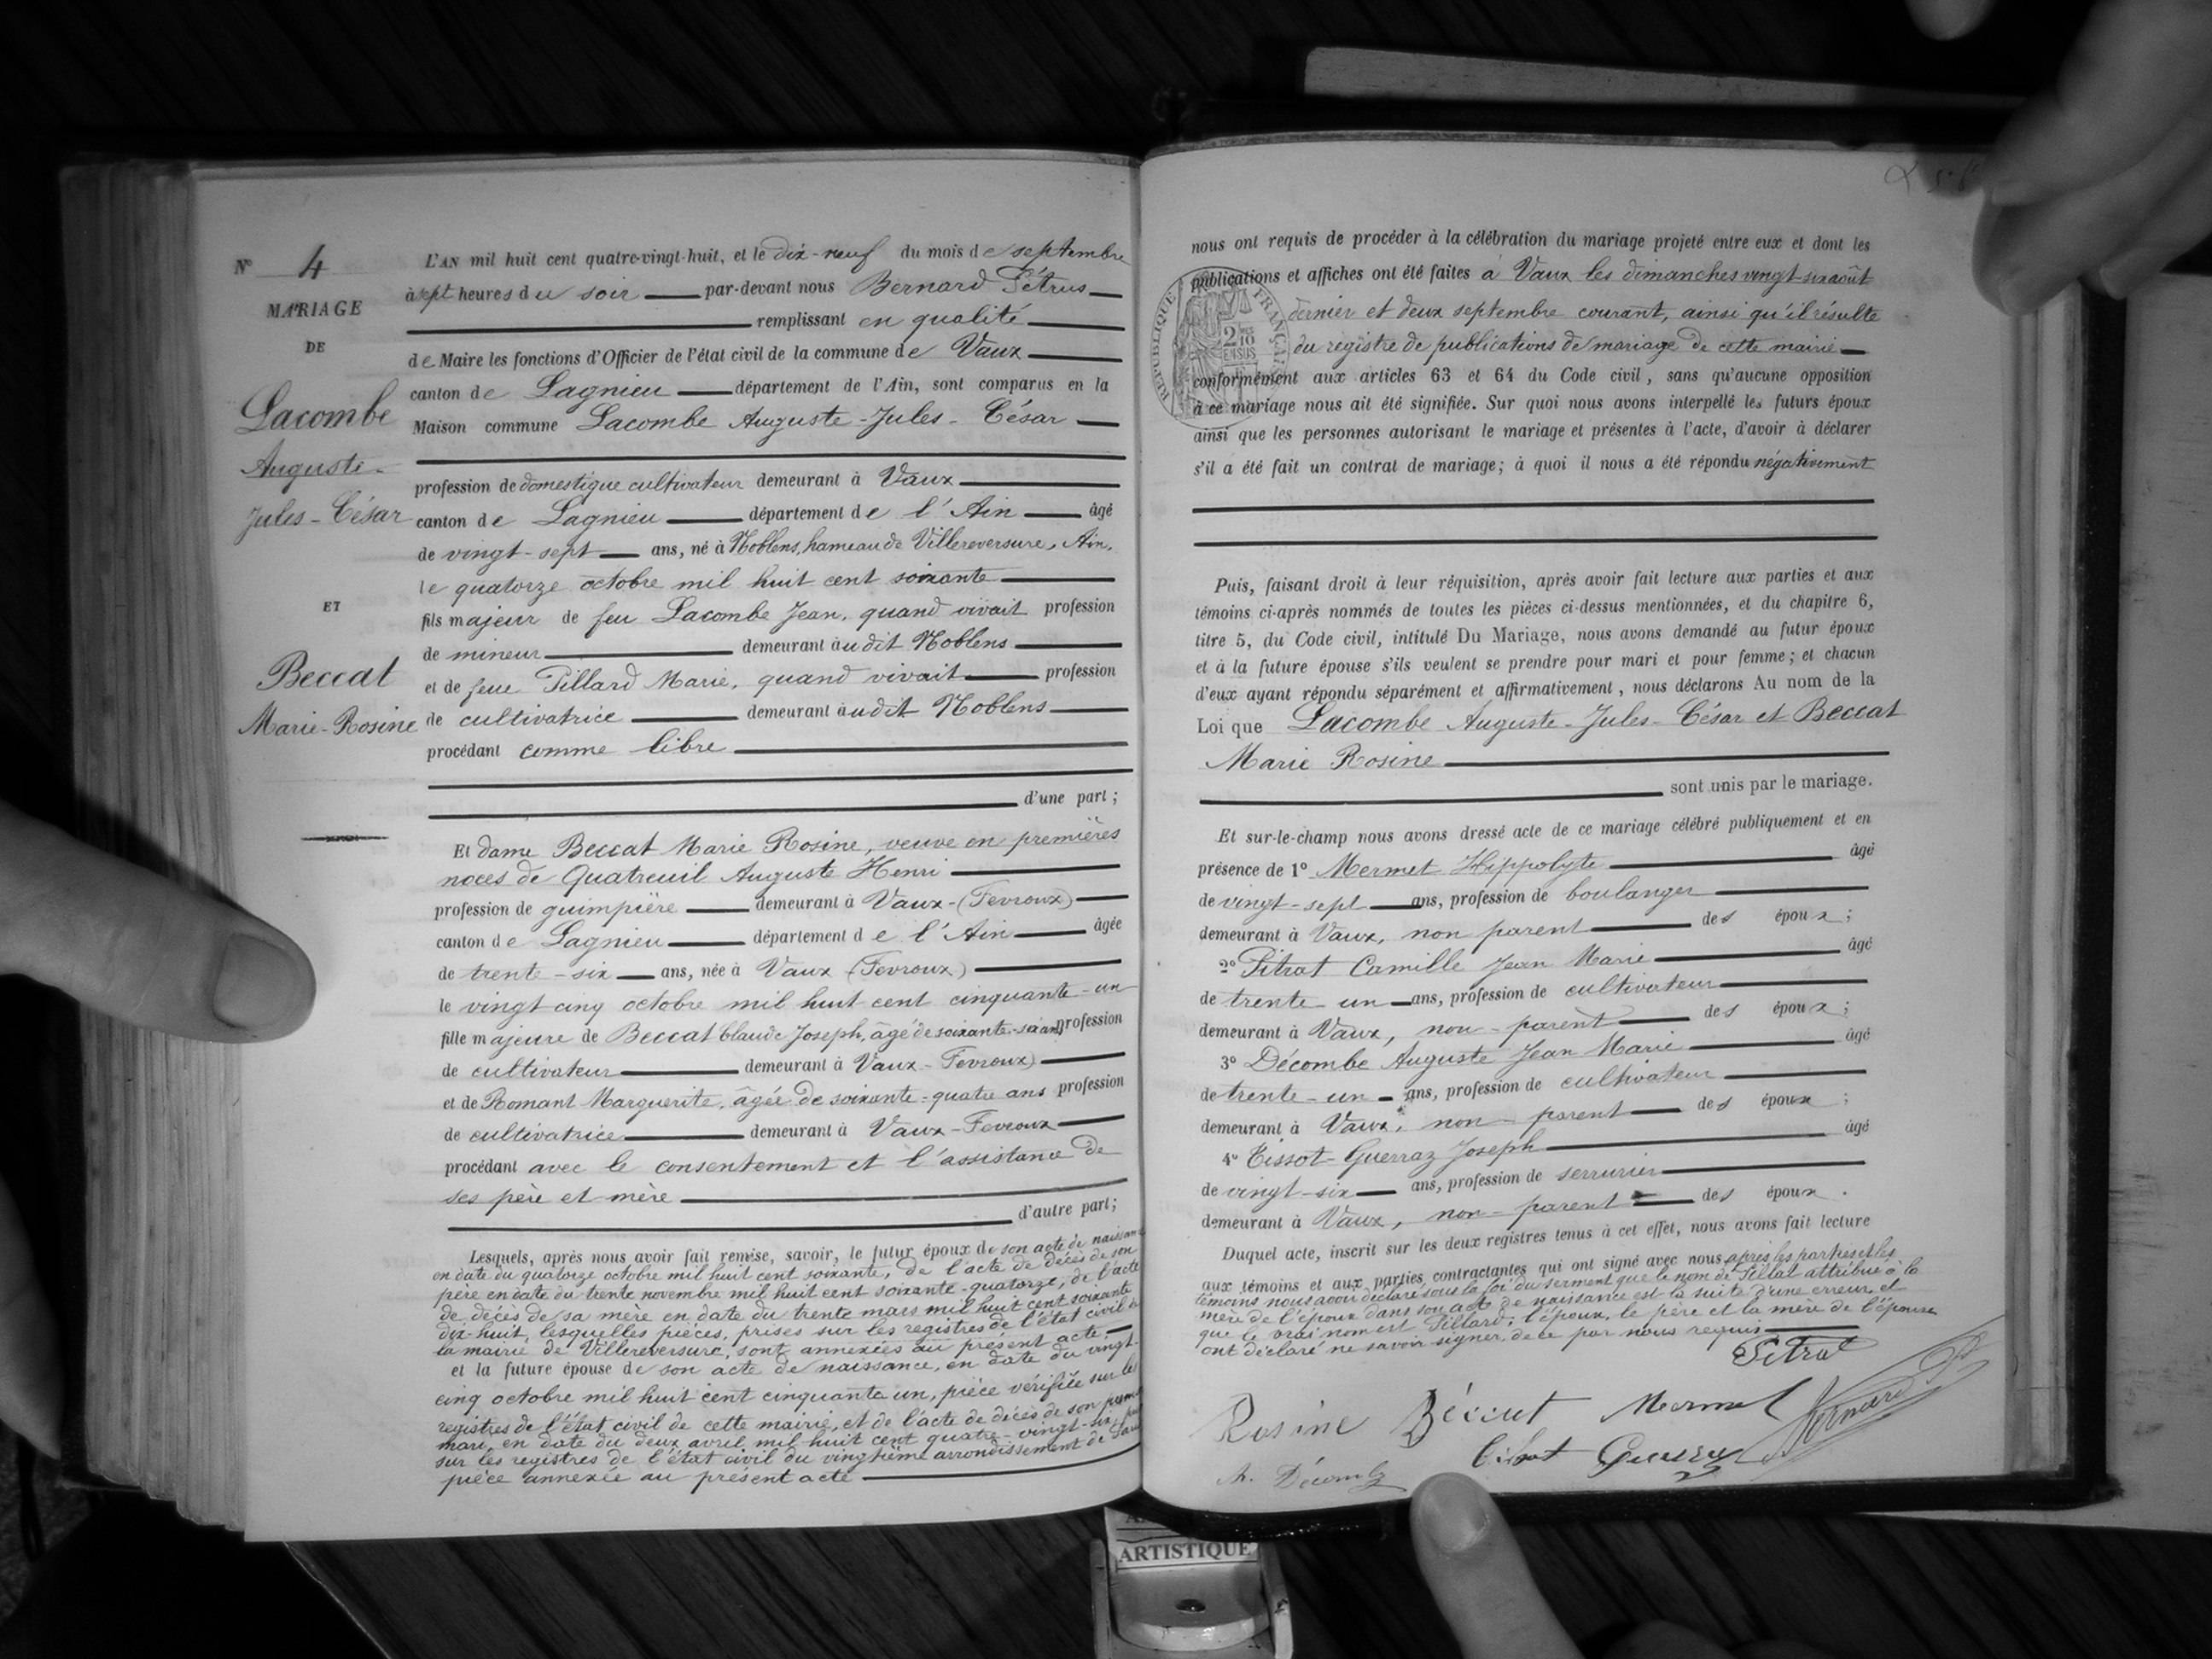 Nº 4
MARIAGE
DE
Lacombe
Auguste-
Jules-César
ET
Beccat
Marie-Rosine
L'AN mil huit cent quatre-vingt-huit, et le dix-neuf du mois de septembre
à sept heures du soir par-devant nous Bernard Pétrus
remplissant en qualité
de Maire les fonctions d'Officier de l'état civil de la commune de Vaux
canton de Lagnieu département de l'Ain, sont comparus en la
Maison commune Lacombe Auguste-Jules-César
profession de domestique cultivateur demeurant à Vaux
canton de Lagnieu département de l'Ain âgé
de vingt-sept ans, né à Noblens, hameau de Villereversure, Ain,
le quatorze octobre mil huit cent soixante
fils majeur de feu Lacombe Jean, quand vivait profession
de mineur demeurant audit Noblens
et de feue Pillard Marie, quand vivait profession
de cultivatrice demeurant audit Noblens
procédant comme libre
d'une part ;
Et dame Beccat Marie Rosine, veuve en premières
noces de Quatreuil Auguste Henri
profession de guimpière demeurant à Vaux-(Fevroux)
canton de Lagnieu département de l'Ain âgée
de trente-six ans, née à Vaux (Fevroux)
le vingt cinq octobre mil huit cent cinquante-un
fille majeure de Beccat Claude Joseph, âgé de soixante-six ans profession
de cultivateur demeurant à Vaux-Fevroux)
et de Romant Marguerite, âgée de soixante-quatre ans profession
de cultivatrice demeurant à Vaux-Fevroux
procédant avec le consentement et l'assistance de
ses père et mère
d'autre part;
Lesquels, après nous avoir fait remise, savoir, le futur époux de son acte de naissance
en date du quatorze octobre mil huit cent soixante, de l'acte de décès de son
père en date du trente novembre mil huit cent soixante-quatorze, de l'acte
de décès de sa mère en date du trente mars mil huit cent soixante
dix-huit, lesquelles pièces, prises sur les registres de l'état civil de
la mairie de Villereversure, sont annexées au présent acte,
et la future épouse de son acte de naissance, en date du vingt-
cinq octobre mil huit cent cinquante un, pièce vérifiée sur les
registres de l'état civil de cette mairie, et de l'acte de décès de son premier
mari, en date du deux avril mil huit cent quatre-vingt-six,
sur les registres de l'état civil du vingtième arrondissement de Paris
pièce annexée au présent acte
nous ont requis de procéder à la célébration du mariage projeté entre eux et dont les
publications et affiches ont été faites à Vaux les dimanches vingt-six août
dernier et deux septembre courant, ainsi qu'il résulte
du registre de publications de mariage de cette mairie
conformément aux articles 63 et 64 du Code civil, sans qu'aucune opposition
à ce mariage nous ait été signifiée. Sur quoi nous avons interpellé les futurs époux
ainsi que les personnes autorisant le mariage et présentes à l'acte, d'avoir à déclarer
s'il a été fait un contrat de mariage; à quoi il nous a été répondu négativement
Puis, faisant droit à leur réquisition, après avoir fait lecture aux parties et aux
témoins ci-après nommés de toutes les pièces ci-dessus mentionnées, et du chapitre 6,
titre 5, du Code civil, intitulé Du Mariage, nous avons demandé au futur époux
et à la future épouse s'ils veulent se prendre pour mari et pour femme; et chacun
d'eux ayant répondu séparément et affirmativement, nous déclarons Au nom de la
Loi que Lacombe Auguste-Jules-César et Beccat
Marie Rosine
sont unis par le mariage.
Et sur-le-champ nous avons dressé acte de ce mariage célébré publiquement et en
présence de 1º Mermet Hippolyte âgé
de vingt-sept ans, profession de boulanger
demeurant à Vaux, non parent des époux;
2º Pitrat Camille Jean Marie âgé
de trente-un ans, profession de cultivateur
demeurant à Vaux, non-parent des époux;
3º Décombe Auguste Jean Marie âgé
de trente-un ans, profession de cultivateur
demeurant à Vaux, non parent des époux;
4º Tissot-Guerraz Joseph âgé
de vingt-six ans, profession de serrurier
demeurant à Vaux, non-parent des époux.
Duquel acte, inscrit sur les deux registres tenus à cet effet, nous avons fait lecture
aux témoins et aux parties contractantes qui ont signé avec nous, après les parties et les
témoins nous avoir déclaré sous la foi du serment que le nom de Pillat attribué à la
mère de l'époux dans son acte de naissance est la suite d'une erreur et
que le vrai nom est Pillard; l'époux, le père et la mère de l'épouse
ont déclaré ne savoir signer, de ce par nous requis
Pitrat
Rosine Béccat Mermet Bernard P.
Tissot Guerraz
A. Décombe
RÉPUBLIQUE FRANÇAISE
2/10
EN SUS
ARTISTIQUE